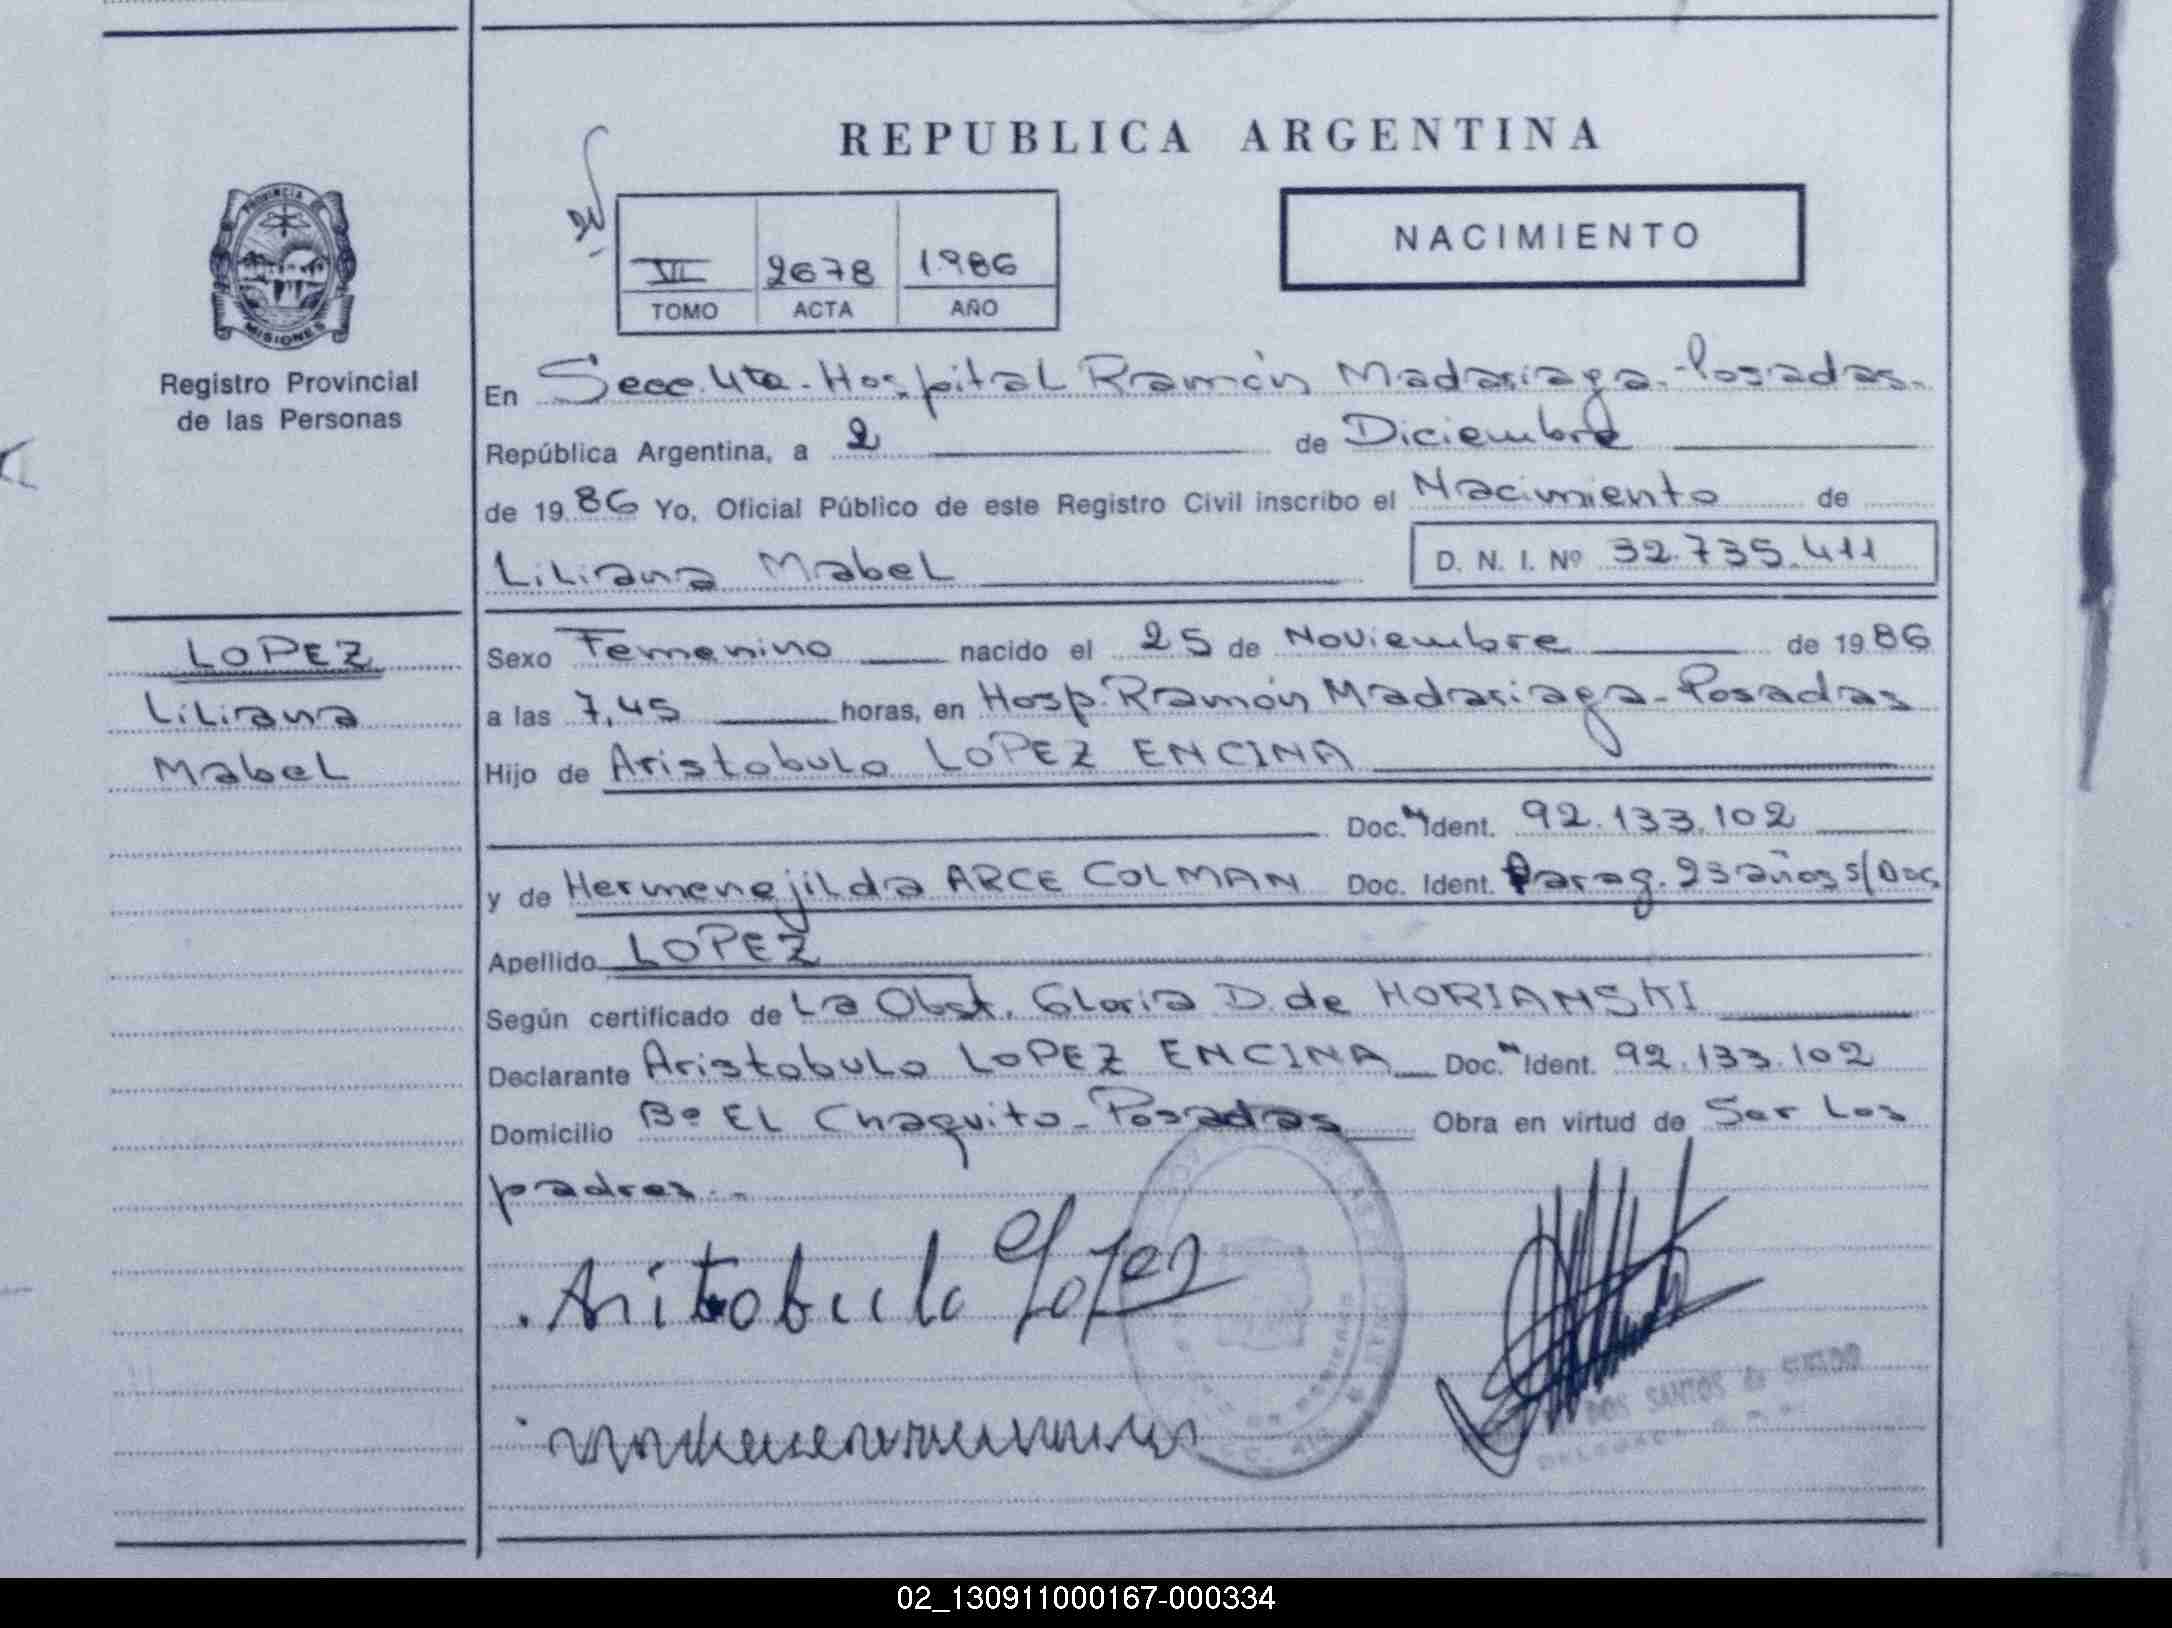 REPUBLICA ARGENTINA
NACIMIENTO
VII 2678 1986
TOMO ACTA AÑO
PROVINCIA DE
MISIONES
Registro Provincial
de las Personas
En Secc. 4ta. Hospital Ramón Madariaga - Posadas.
República Argentina, a 2 de Diciembre
de 1986 Yo, Oficial Público de este Registro Civil inscribo el Nacimiento de
Liliana Mabel D. N. I. Nº 32.735.411
LOPEZ
Liliana
Mabel
Sexo Femenino nacido el 25 de Noviembre de 1986
a las 7,45 horas, en Hosp. Ramón Madariaga - Posadas
Hijo de Aristobulo LOPEZ ENCINA
Doc. Ident. 92.133.102
y de Hermenejilda ARCE COLMAN Doc. Ident. Parag. 23 años s/Doc
Apellido LOPEZ
Según certificado de La Obst. Gloria D. de HORIANSKI
Declarante Aristobulo LOPEZ ENCINA Doc. Ident. 92.133.102
Domicilio Bº EL Chaquito - Posadas Obra en virtud de Ser Los
padres.-
Aritobulo Lopez
DOS SANTOS de
02_130911000167-000334